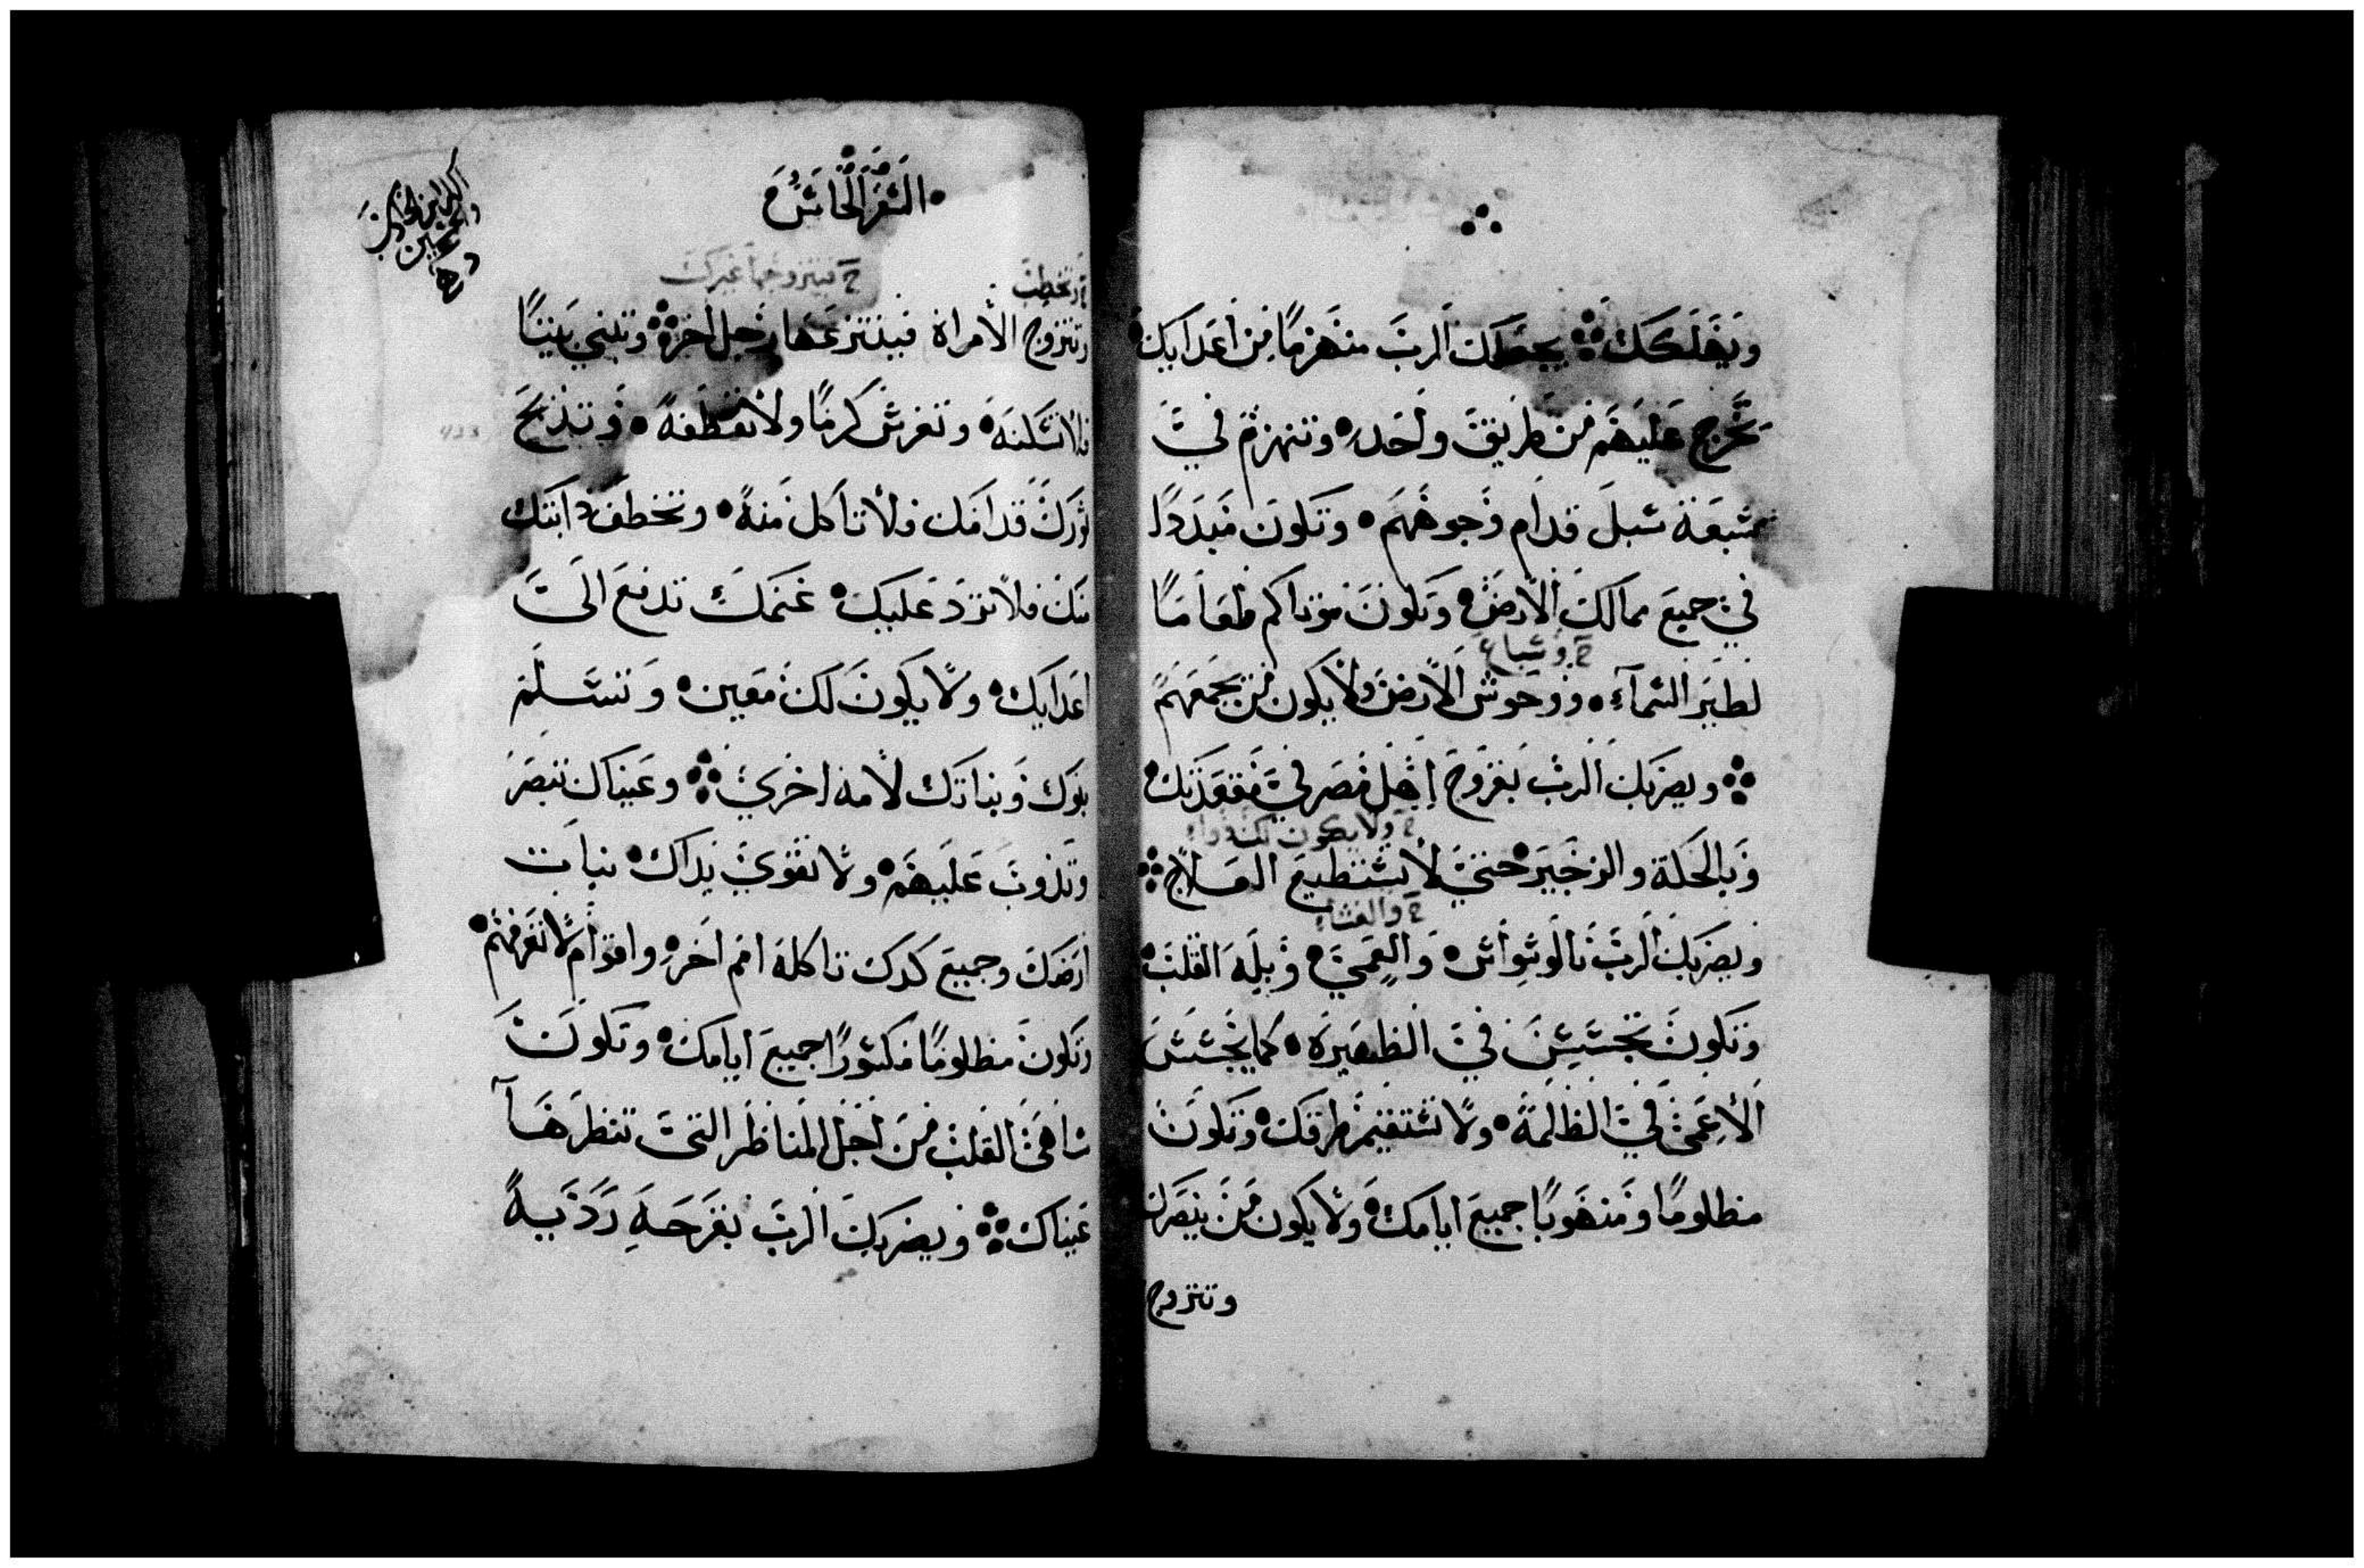 ويهلكك يجعلك الرب منهزما من اعدايك
تخرج عليهم من طريق واحد وتنهزم في
سبعة سبل قدام وجوههم وتكون مبددا
في جميع ممالك الارض وتكون موتاكم طعاما
خ وسباع
لطير السماء ووحوش الارض ولا يكون من يجمعهم
ويضربك الرب بقروح اهل مصر في مقعدتك
خ ولا يكون لك دواء
وبالحكة والزحير حتي لا تستطيع العلاج
خ والغشاء
ويضربك الرب بالوسواس والعمي وبله القلب
وتكون تجسس في الظهيرة كما يجسس
الاعمي في الظلمة ولا تستقيم طرقك وتكون
مظلوما ومنهوبا جميع ايامك ولا يكون من ينصرك
وتتزوج
السفر الخامس
خ وتخطب
خ فيتزوجها غيرك
وتتزوج الامراة فينتزعها رجل اخر وتبني بيتا
فلا تسكنه وتغرس كرما ولا تقطفه وتذبح
ثورك قدامك فلا تاكل منه وتخطف دابتك
منك فلا ترد عليك غنمك تدفع الي
اعدايك ولا يكون لك معين وتسلم
بنوك وبناتك لامة اخري وعيناك تبصر
وتذوب عليهم ولا تقوي يداك نبات
ارضك وجميع كدك تاكله امم اخر واقوام لا تعرفهم
وتكون مظلوما مكسورا جميع ايامك وتكون
ساهي القلب من اجل المناظر التي تنظرها
عيناك ويضربك الرب بقرحة رديه